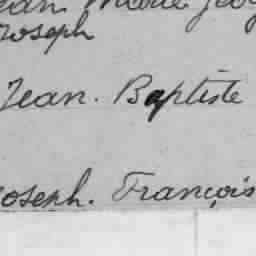 Jean Marie Jos
Joseph
Jean. Baptiste
Joseph. François